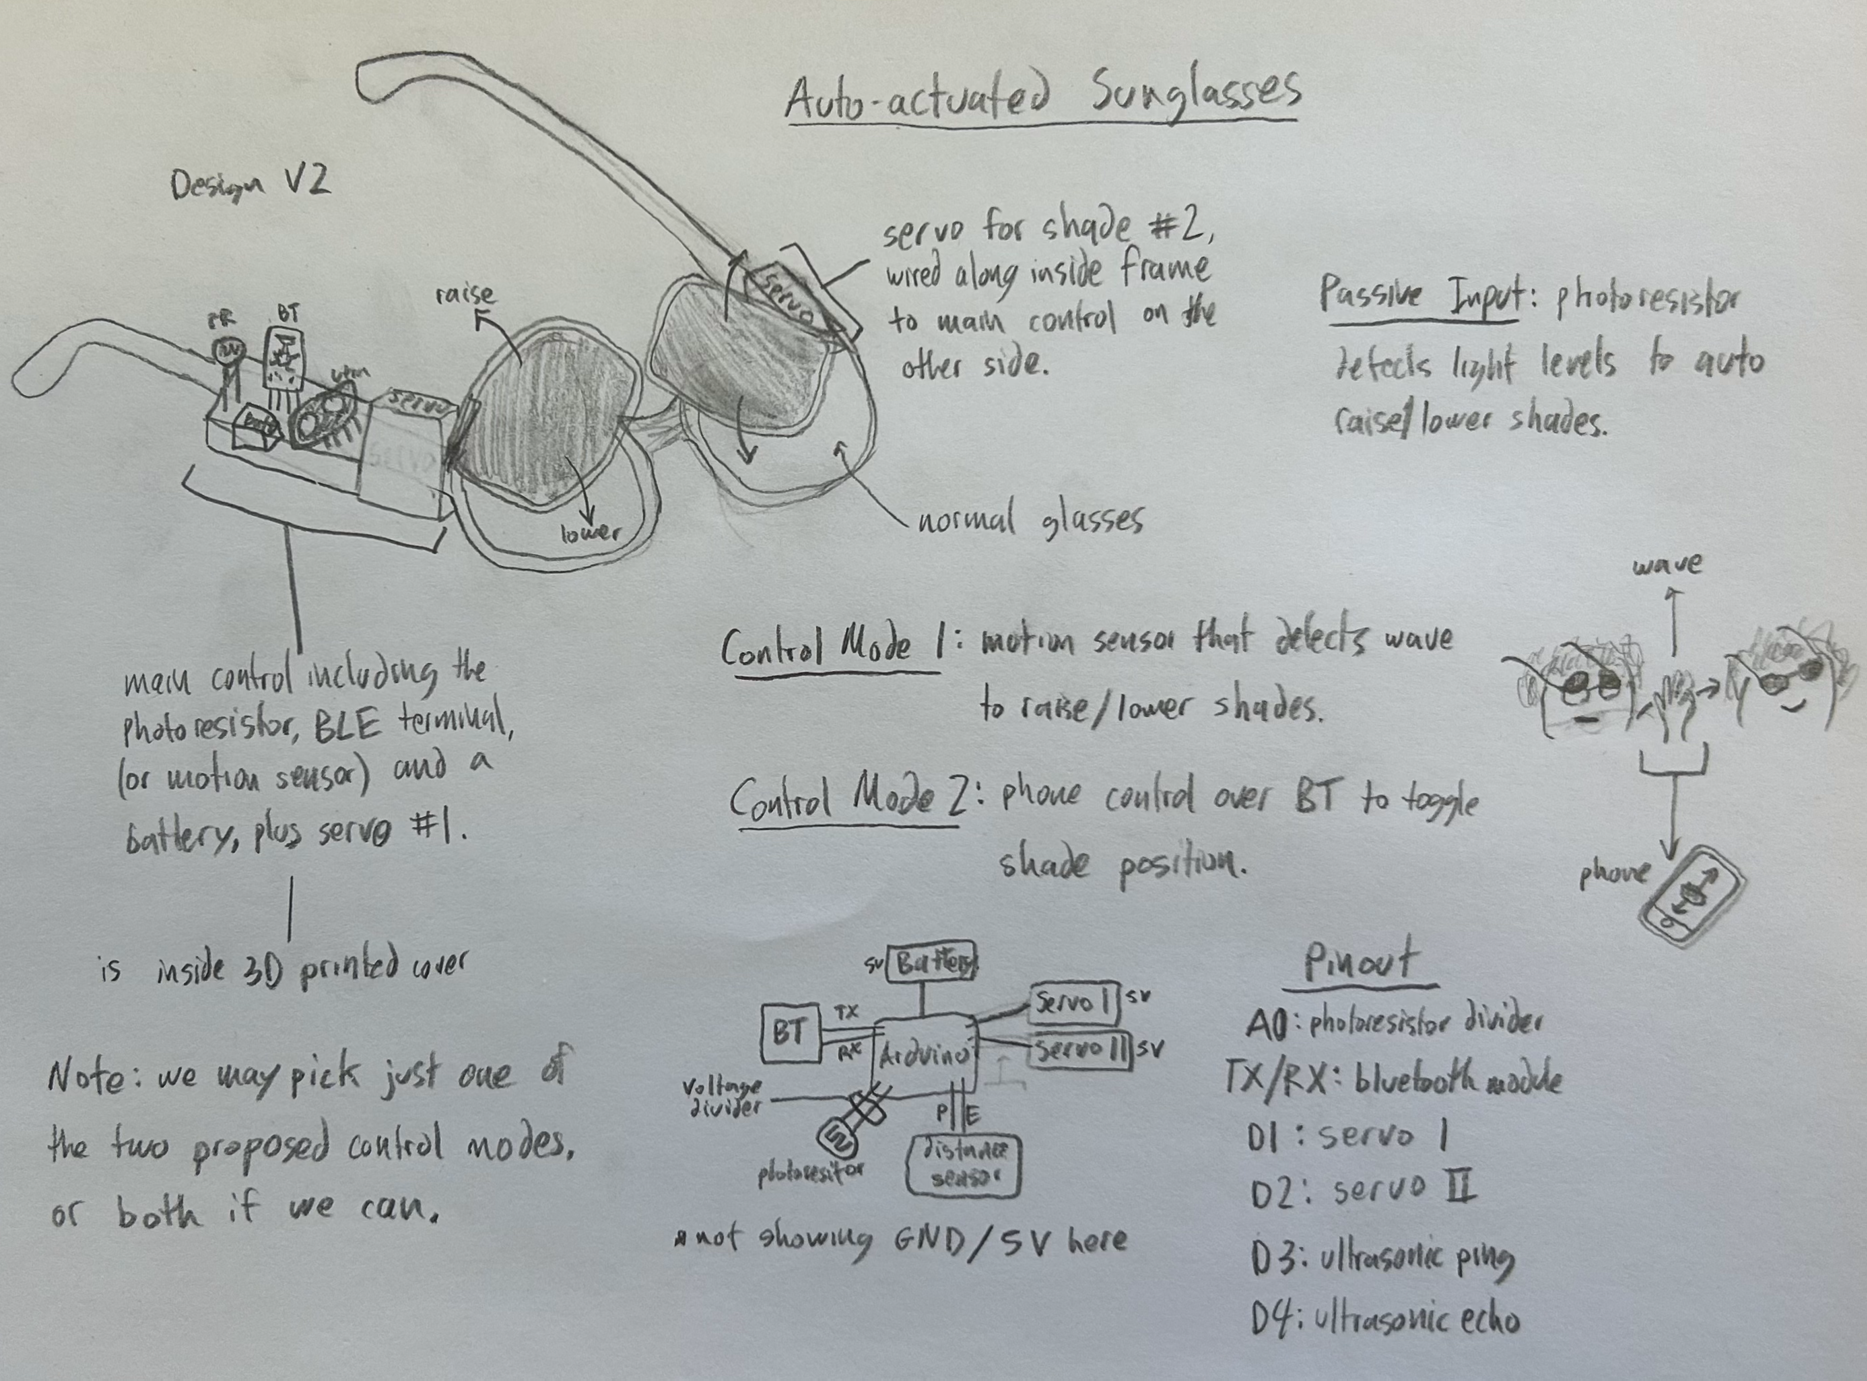 Auto-actuated Sunglasses
Design V2
servo for shade #2,
wired along inside frame
to main control on the
other side.
Passive Input: photoresistor
detects light levels to auto
raise/lower shades.
raise
PR
BT
servo
servo
lower
normal glasses
wave
main control including the
photoresistor, BLE terminal,
(or motion sensor) and a
battery, plus servo #1.
is inside 3D printed cover
Control Mode 1: motion sensor that detects wave
to raise/lower shades.
Control Mode 2: phone control over BT to toggle
shade position.
phone
Note: we may pick just one of
the two proposed control modes,
or both if we can.
5V Battery
BT
TX
RX
Arduino
Servo I 5V
Servo II 5V
voltage
divider
photoresitor
P E
distance
sensor
*not showing GND/5V here
Pinout
A0: photoresistor divider
TX/RX: bluetooth module
D1: servo 1
D2: servo II
D3: ultrasonic ping
D4: ultrasonic echo